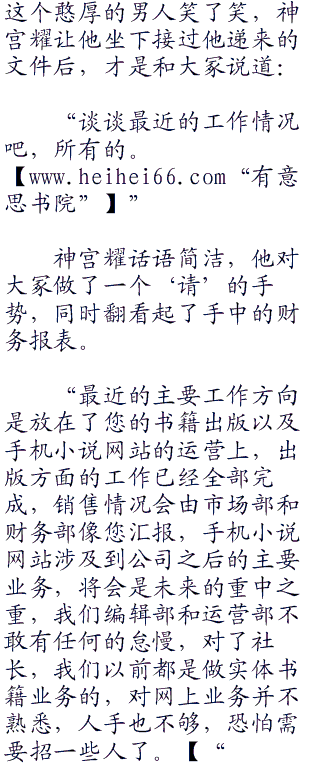 这个憨厚的男人笑了笑，神
宫耀让他坐下接过他递来的
文件后，才是和大冢说道：
“谈谈最近的工作情况
吧，所有的。
【www.heihei66.com“有意
思书院”】”
神宫耀话语简洁，他对
大冢做了一个‘请’的手
势，同时翻看起了手中的财
务报表。
“最近的主要工作方向
是放在了您的书籍出版以及
手机小说网站的运营上，出
版方面的工作已经全部完
成，销售情况会由市场部和
财务部像您汇报，手机小说
网站涉及到公司之后的主要
业务，将会是未来的重中之
重，我们编辑部和运营部不
敢有任何的怠慢，对了社
长，我们以前都是做实体书
籍业务的，对网上业务并不
熟悉，人手也不够，恐怕需
要招一些人了。【“